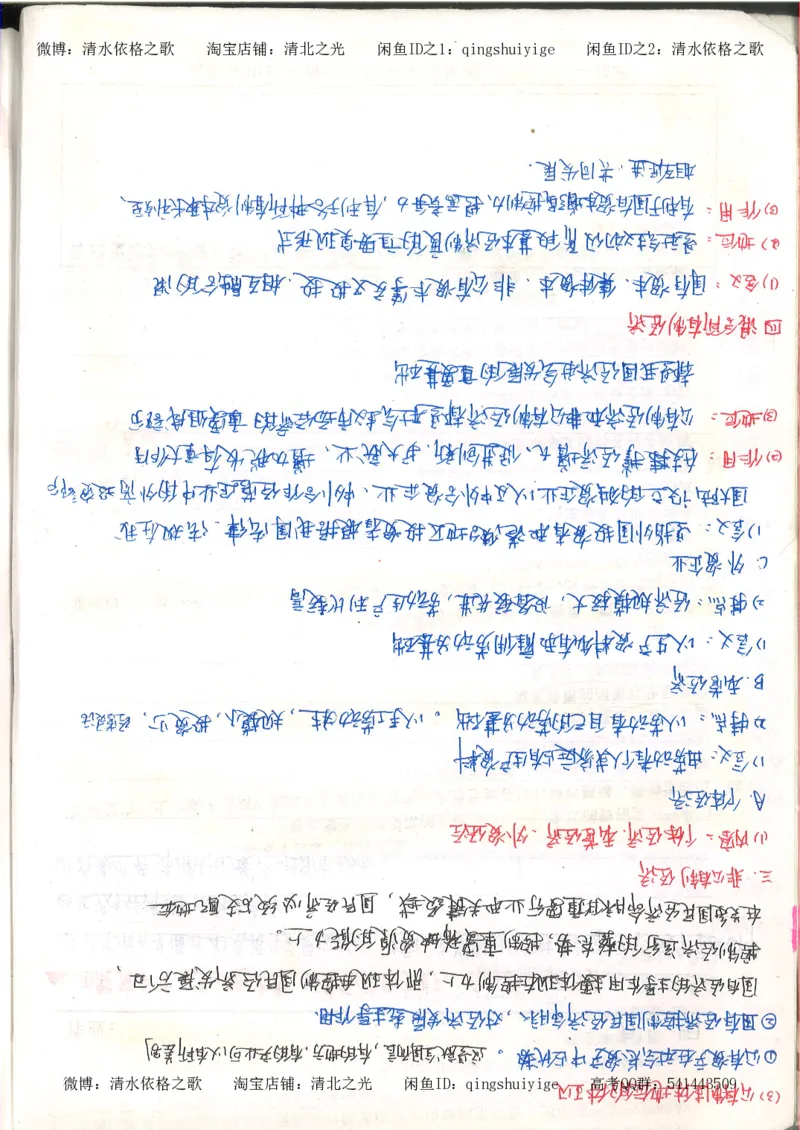 微博：清水依格之歌 淘宝店铺：清北之光 闲鱼ID之1：qingshuiyige 闲鱼ID之2：清水依格之歌
(3)公有制主体地位的体现
①公有资产在社会总资产中占优势。这是就全国而言,有的地方,有的产业可以有所差别
②国有经济控制国民经济命脉,对经济发展起主导作用.
国有经济的主导作用主要体现在控制力上,即体现在控制国民经济发展方向、
控制经济运行的整体态势、控制重要稀缺资源的能力上。
在关系国民经济命脉的重要行业和关键领域,国民经济必须占支配地位
三.非公有制经济
(1)内容:个体经济.私营经济.外资经济
A.个体经济
1)含义:由劳动者个人或家庭占有生产资料
2)特点:以劳动者自己的劳动为基础。以手工劳动为主,规模小,投资少,经营灵活
B.私营经济
1)含义:以生产资料私有和雇佣劳动为基础
2)特点:经济规模较大,设备较先进,劳动生产率比较高
C.外资企业
1)含义:是指外国投资者和港澳台地区投资者根据我国法律.法规在我
国大陆设立的独资企业以及中外合资企业、中外合作经营企业中的外商投资部分
(2)作用:在支撑经济增长,促进创新,扩大就业、增加税收有重大作用
(3)地位:公有制经济和非公有制经济都是社会主义市场经济的重要组成部分
都是我国经济社会发展的重要基础
四 混合所有制经济
(1)含义:国有资本、集体资本、非公有资本等交叉持股.相互融合
(2)地位:是社会主义初级阶段基本经济制度的重要实现形式
(3)作用:有利于国有资本增强控制力,提高竞争力,有利于各种所有制资本取长补短、
相互促进.共同发展.
微博：清水依格之歌 淘宝店铺：清北之光 闲鱼ID：qingshuiyige 高考QQ群：541443509